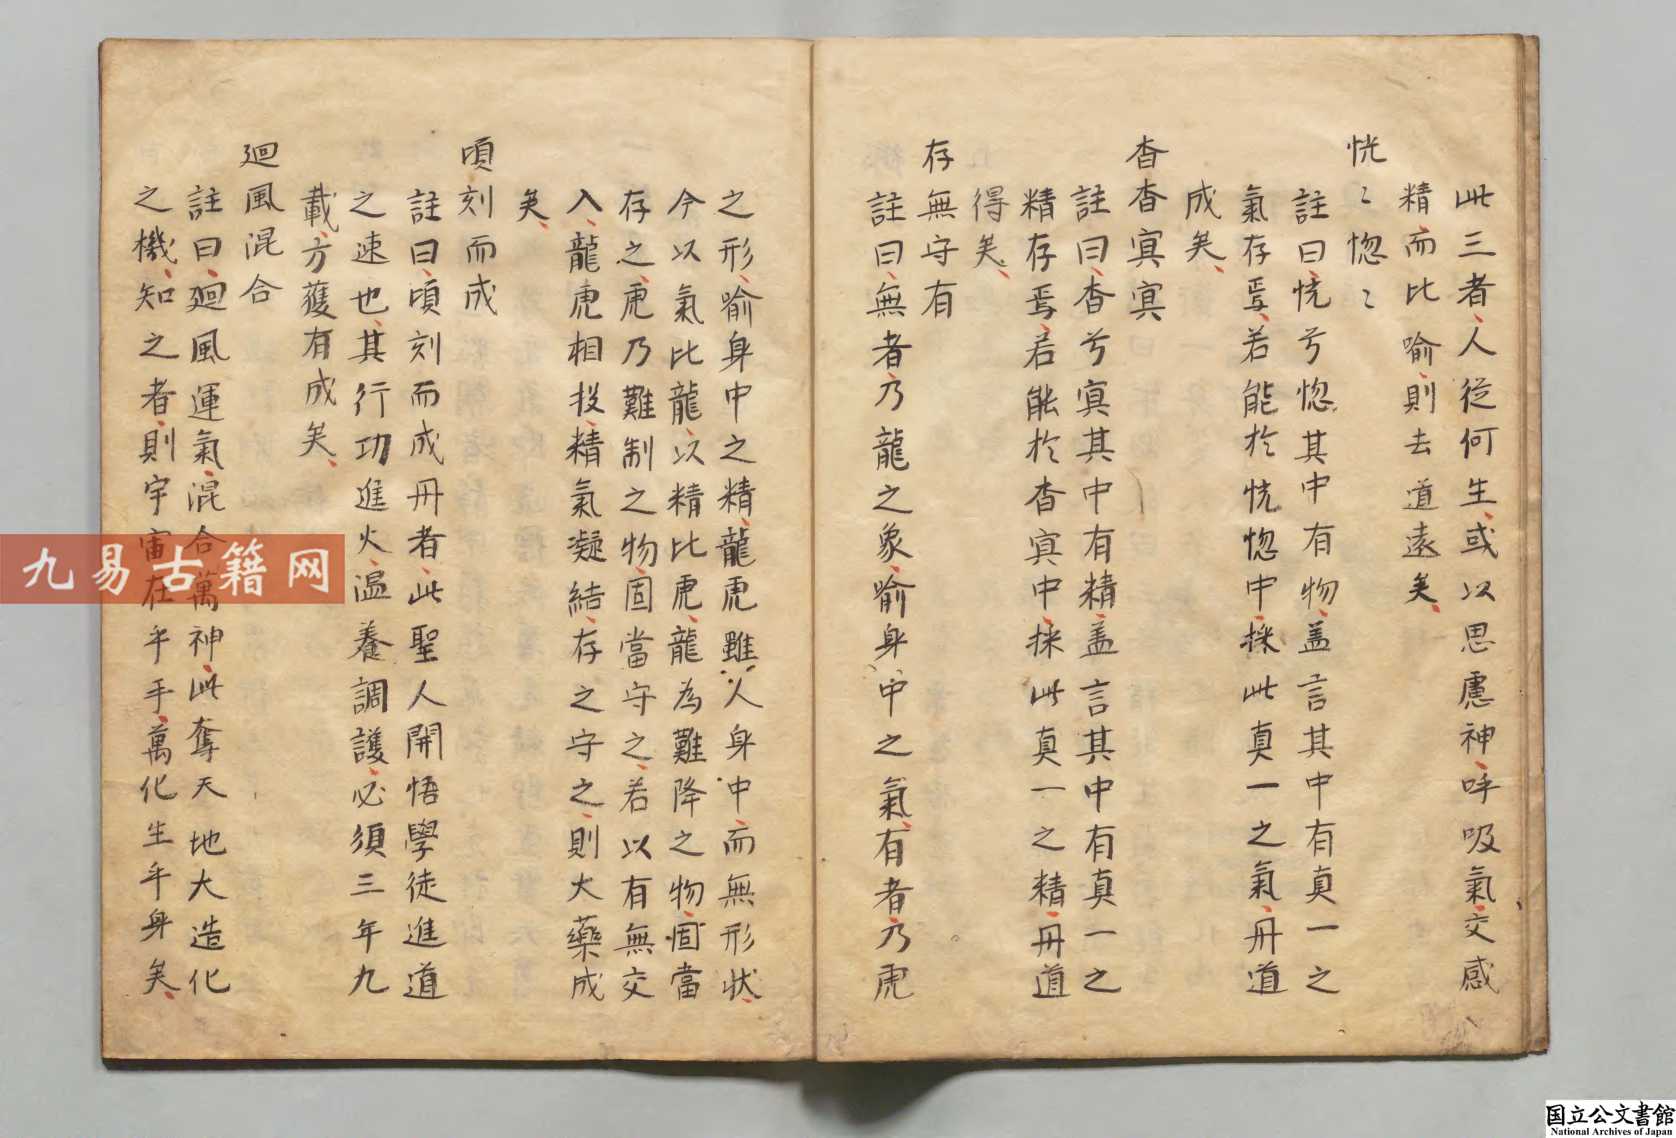 此三者人從何生或以思慮神呼吸氣交感
精而比喻則去道遠矣
恍〻惚〻
註曰恍兮惚其中有物盖言其中有真一之
氣存焉若能於恍惚中採此真一之氣丹道
成矣
杳杳寘寘
註曰杳兮寘其中有精盖言其中有真一之
精存焉若能於杳寘中採此真一之精丹道
得矣
存無守有
註曰無者乃龍之象喻身中之氣有者乃虎
之形喻身中之精龍虎雖人身中而無形状
今以氣比龍以精比虎龍為難降之物固當
存之虎乃難制之物固當守之若以有無交
入龍虎相投精氣凝結存之守之則大藥成
矣
頃刻而成
註曰頃刻而成丹者此聖人開悟學徒進道
之速也其行功進火温養調護必須三年九
載方獲有成矣
廻風混合
註曰廻風運氣混合萬神此奪天地大造化
之機知之者則宇宙在乎手萬化生乎身矣
九易古籍网
国立公文書館
National Archives of Japan